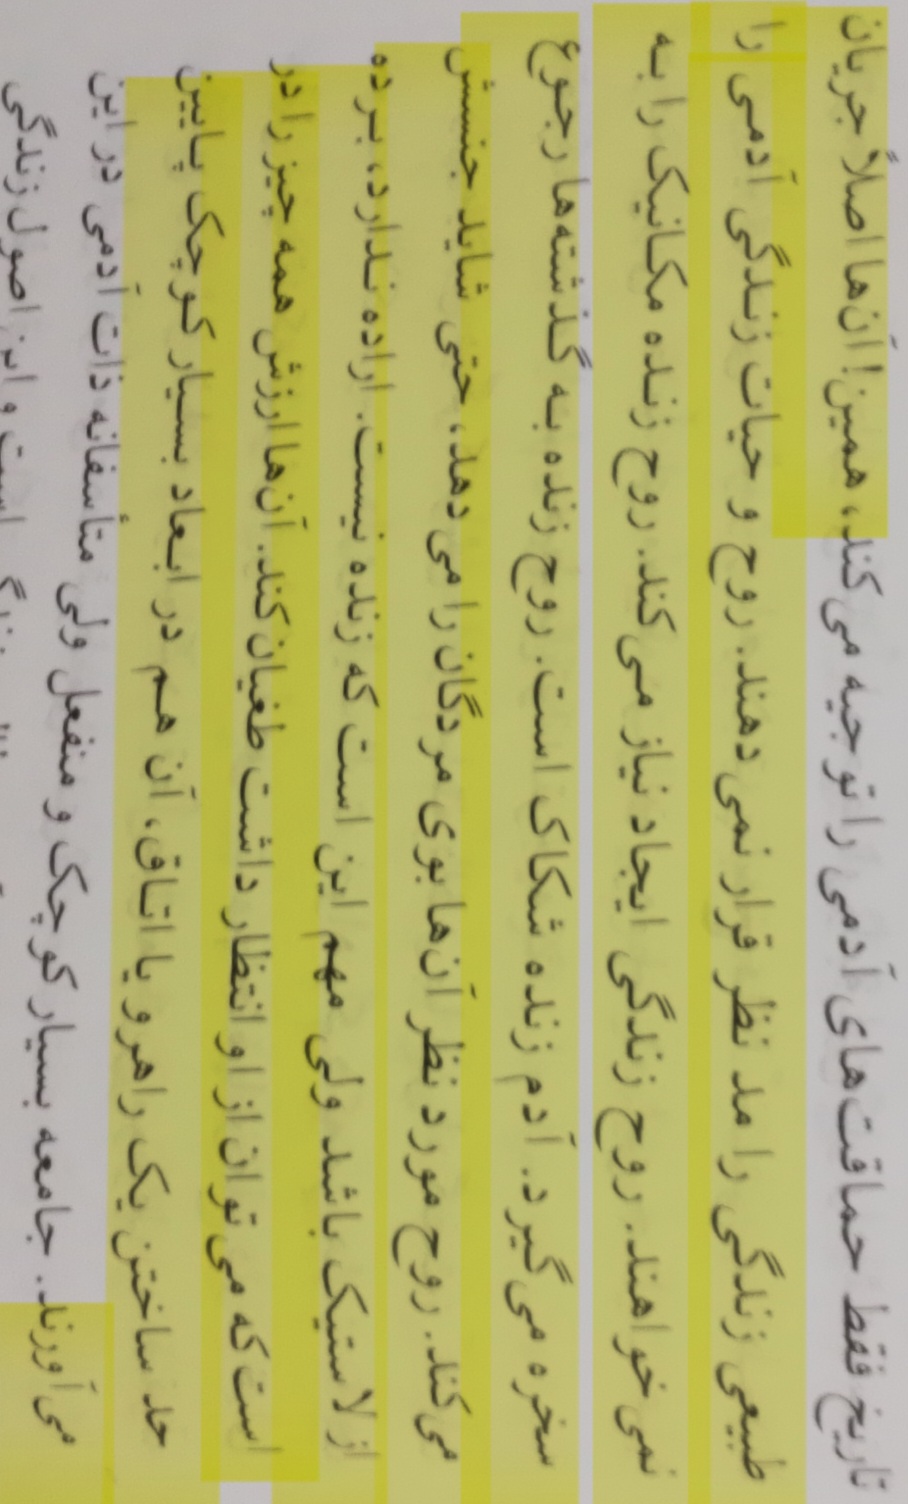 تاریخ فقط حماقت‌های آدمی را توجیه می‌کند، همین! آن‌ها اصلاً جریان
طبیعی زندگی را مد نظر قرار نمی‌دهند. روح و حیات زندگی آدمی را
نمی‌خواهند. روح زندگی ایجاد نیاز می‌کند. روح زنده مکانیک را به
سخره می‌گیرد. آدم زنده شکاک است. روح زنده به گذشته‌ها رجوع
می‌کند. روح مورد نظر آن‌ها بوی مردگان را می‌دهد، حتی شاید جنسش
از لاستیک باشد ولی مهم این است که زنده نیست. اراده ندارد، برده
است که می‌توان از او انتظار داشت طغیان کند. آن‌ها ارزش همه چیز را در
حد ساختن یک راهرو یا اتاق، آن هم در ابعاد بسیار کوچک پایین
می‌آورند. جامعه بسیار کوچک و منفعل ولی متأسفانه ذات آدمی در این
است و این اصول زندگی